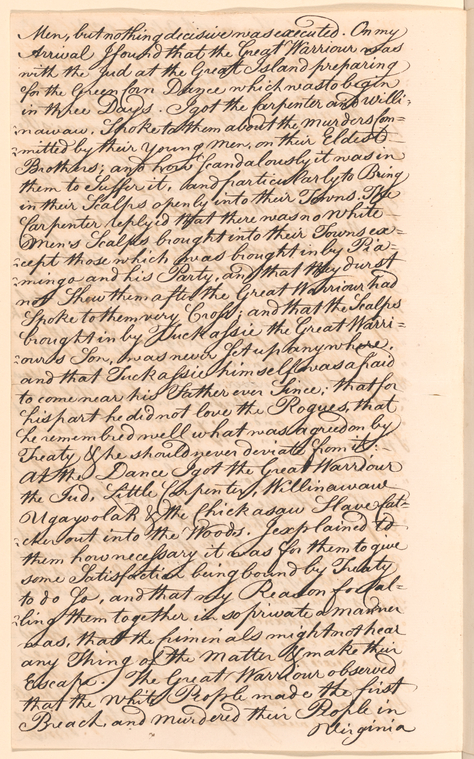 Men, but nothing decisive was executed. On my
Arrival I found that the Great Warriour was
with the Jud at the Great Island preparing
for the Green Corn Dance which was to begin
in three Days. I got the Carpenter and Willi-
nawaw. Spoke to them about the murders com-
mitted by their young Men, on their Eldest
Brothers; and how scandalously it was in
them to Suffer it, and particularly to Bring
in their Scalps openly into their Towns. The
Carpenter replyed that there was no White
Men's Scalps brought into their Towns ex-
cept those which was brought in by
mingo and his Party, and that they durst
not Show them after the Great Warriour had
Spoke to them very Cross; and that the Scalps
brought in by Tuckassie the Great Warri-
our's Son, was never Set up any where,
and that Tuckassie himself was afraid
to come near his Father ever Since; that for
his part he did not love the Rogues, that
he remembred well what was agreed on by
Treaty & he should never deviate from it.
At the Dance I got the Great Warriour
the Jud, Little Carpenter, Willinawaw
Ugayoolah & the Chickasaw Slave Cat-
cher out into the Woods. I explained to
them how necessary it was for them to give
some Satisfaction being bound by Treaty
to do So, and that my Reason for Cal-
ling them together in so private a manner
was, that the Criminals might not hear
any Thing of the Matter & make their
Escape. The Great Warriour observed
that the White People made the first
Breach and murdered their People in
Virginia